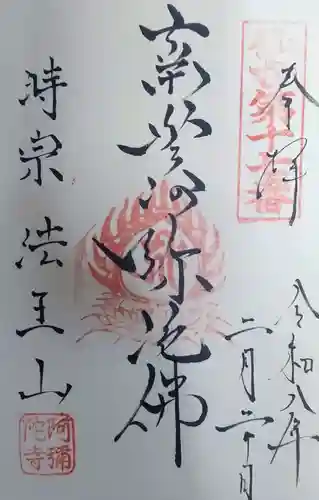 奉拝
令和八年
二月二十日
南無阿弥陀佛
時宗 法王山
阿彌
陀寺